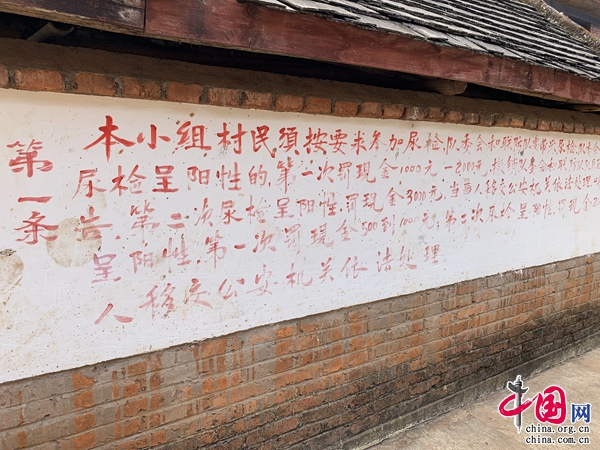 第一条
本小组村民须按要求参加尿检,队委会和联防队
尿检呈阳性的,第一次罚现金1000元—2000元,
告,第二次尿检呈阳性,罚现金3000元,当事人移交公安机关依法处理
呈阳性,第一次罚现金500到1000元;第二次尿检呈阳性,罚现金
人移交公安机关依法处理
中国网
china.org.cn
china.com.cn